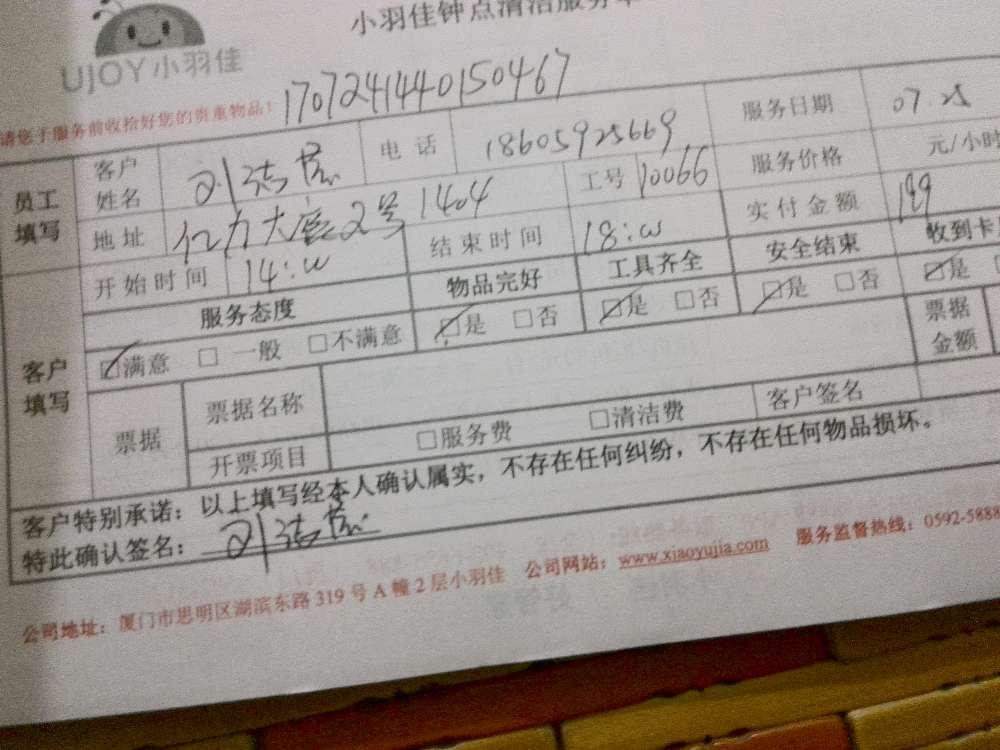 小羽佳钟点清洁服务单
UJOY小羽佳
请您于服务前收拾好您的贵重物品! 1707241440150467
员工填写 客户姓名 电话 18605925669 服务日期 07.25
地址 亿力大厦2号1404 工号 10066 服务价格 元/小时
开始时间 14:00 结束时间 18:00 实付金额 199
客户填写 服务态度 物品完好 工具齐全 安全结束 收到卡
☑满意 □一般 □不满意 ☑是 □否 ☑是 □否 ☑是 □否 ☑是
票据 票据名称 票据金额
开票项目 □服务费 □清洁费 客户签名
客户特别承诺:以上填写经本人确认属实,不存在任何纠纷,不存在任何物品损坏。
特此确认签名:
公司地址:厦门市思明区湖滨东路319号A幢2层小羽佳 公司网站:www.xiaoyujia.com 服务监督热线:0592-5888